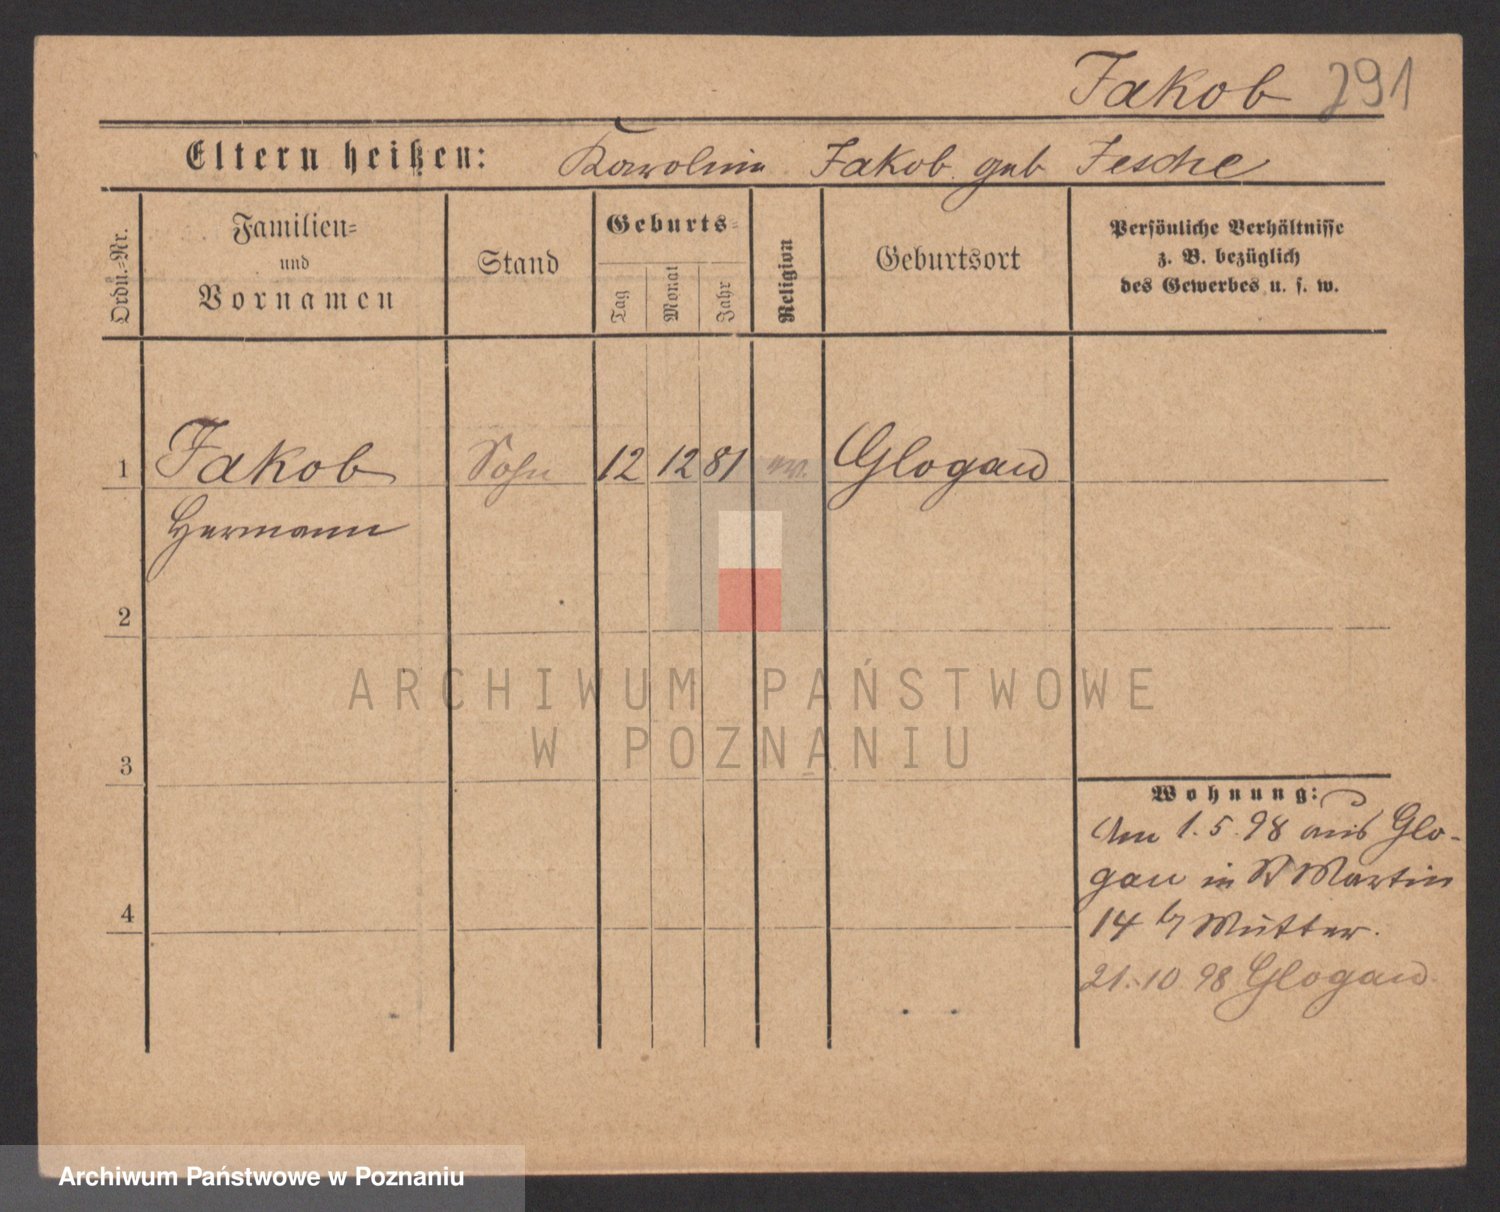 Jakob 291
Eltern heißen: Karoline Jakob geb Jesche
Ordn.-Nr.
Familien-
und
Vornamen
Stand
Geburts-
Tag
Monat
Jahr
Religion
Geburtsort
Persönliche Verhältnisse
z. B. bezüglich
des Gewerbes u. s. w.
1 Jakob Sohn 12 12 81 ev. Glogau
Hermann
2
ARCHIWUM PAŃSTWOWE
W POZNANIU
3
Wohnung:
Am 1. 5. 98 aus Glo-
gau in St Martin
14 b/ Mutter.
21. 10 98 Glogau
4
Archiwum Państwowe w Poznaniu